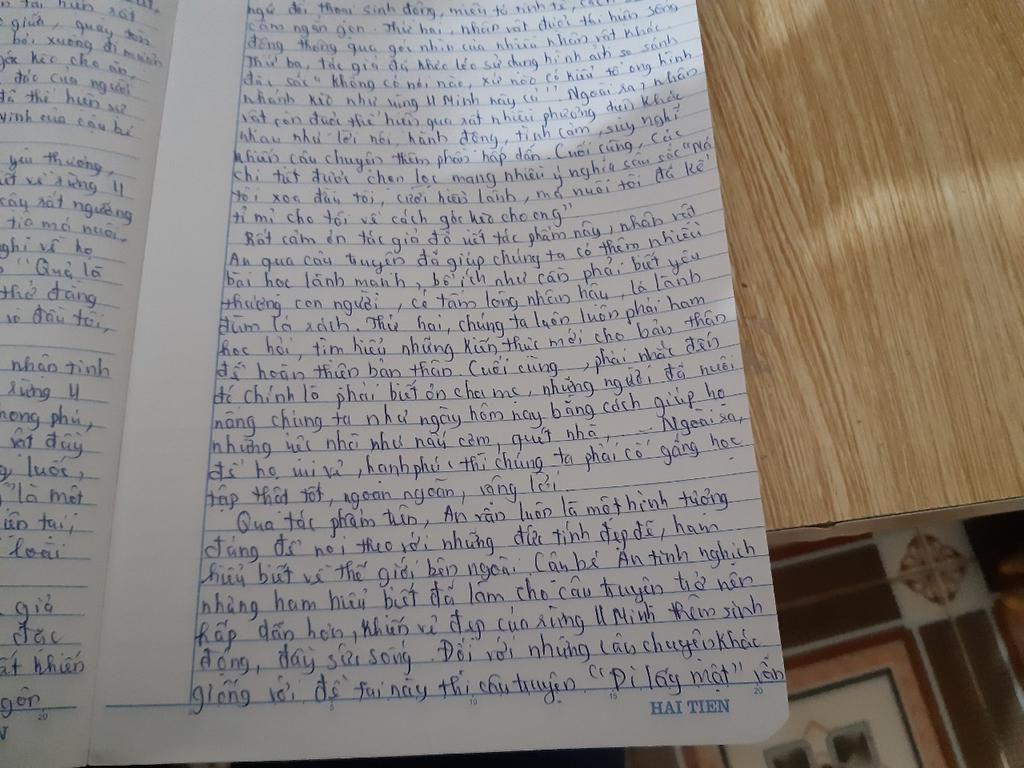 tại hiện rất
giữa, quay
bởi xương đi
gác kèo cho ăn,
đốc của người
đã thể hiện sự
minh của cậu bé
yêu thương,
về rừng U
cây rất ngưỡng
tía má nuôi.
nghĩ về họ
"Quả là
thở đăng
vò đầu tôi,
nhân tình
rừng U
phong phú,
vật đấy
luốc,
"là một
tai,
loài
giả
đặc
khiến
gôn
ngữ đối thoại sinh động, miêu tả tinh tế, cách
cảm ngắn gọn. Thứ hai, nhân vật được thể hiện sống
động thông qua góc nhìn của nhiều nhân vật khác.
Thứ ba, tác giả đã khéo léo sử dụng hình ảnh so sánh
đặc sắc "không có nơi nào, xứ nào có kiểu tổ ong hình
nhánh kèo như rừng U Minh này cả". Ngoài ra, nhân
vật còn được thể hiện qua rất nhiều phương diện khác
nhau như lời nói, hành động, tình cảm, suy nghĩ
khiến câu chuyện thêm phần hấp dẫn. Cuối cùng, các
chi tiết được chọn lọc mang nhiều ý nghĩa sâu sắc "Má
tôi xoa đầu tôi, cười hiền lành, má nuôi tôi đã kể
tỉ mỉ cho tôi về cách gác kèo cho ong"
Rất cảm ơn tác giả đã viết tác phẩm này, nhân vật
An qua câu truyện đã giúp chúng ta có thêm nhiều
bài học lành mạnh, bổ ích như cần phải biết yêu
thương con người, có tấm lòng nhân hậu, lá lành
đùm lá rách. Thứ hai, chúng ta luôn luôn phải ham
học hỏi, tìm hiểu những kiến thức mới cho bản thân
để hoàn thân bản thân. Cuối cùng, phải nhắc đến
đó chính là phải biết ơn cha mẹ, những người đã nuôi
nấng chúng ta như ngày hôm nay bằng cách giúp họ
những việc nhỏ như nấu cơm, quét nhà, ... Ngoài ra,
để họ vui vẻ, hạnh phúc thì chúng ta phải cố gắng học
tập thật tốt, ngoan ngoãn, vâng lời.
Qua tác phẩm trên, An vẫn luôn là một hình tượng
đáng để noi theo với những đức tính đẹp đẽ, ham
hiểu biết về thế giới bên ngoài. Cậu bé An tinh nghịch
nhưng ham hiểu biết đã làm cho câu truyện trở nên
hấp dẫn hơn, khiến vẻ đẹp của rừng U Minh thêm sinh
động, đầy sức sống. Đối với những câu chuyện khác
giống với đề tài này thì câu truyện "Đi lấy mật" vẫn
5 10 15 20
HAI TIEN
20
N